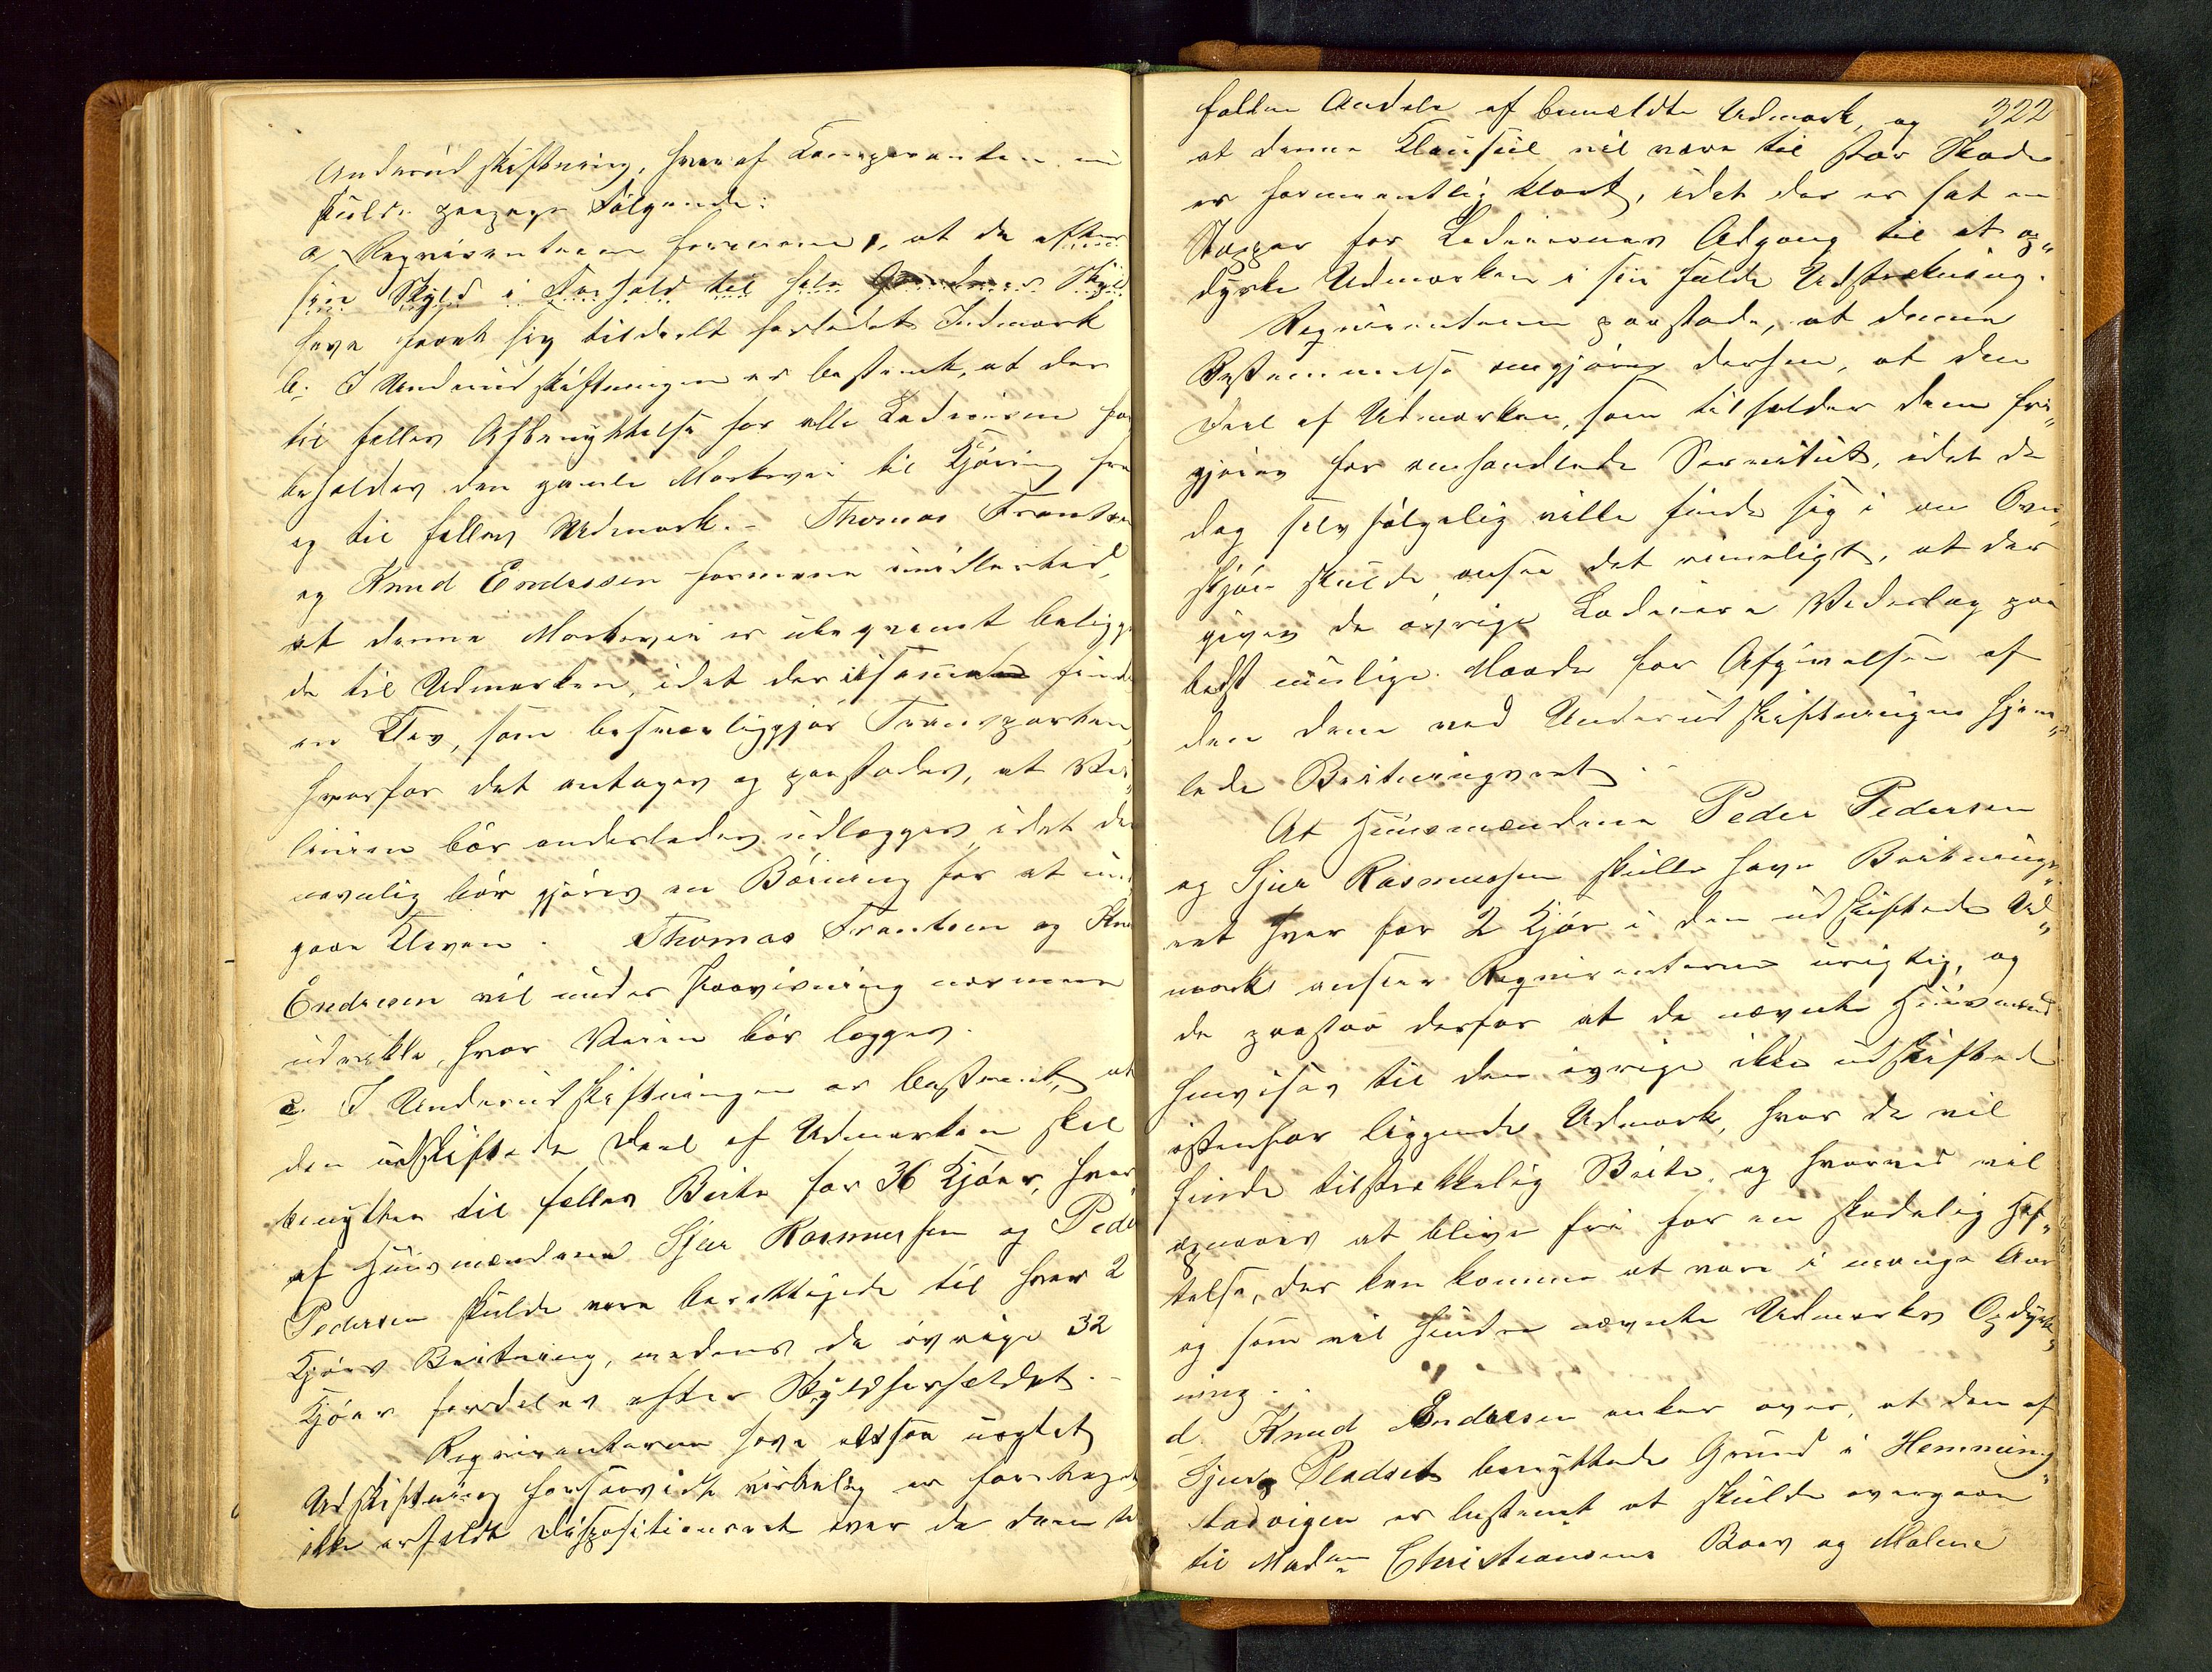 Underudskiftning, hvoraf Komparenten nu
skulde paapege Følgende:
a Reqvirenterne formene, at de efter
sin Skyld i Forhold til hele Skyld
have faaet sig tildeelt forlidet Indmark
b. I Underudskiftningen er bestemt, at der
til felles Afbenyttelse for alle Lodeierne for
beholdes den gamle Markevei til Kjøring fra
og til felles Udmark. – Thomas Frantsen
og Knud Endresen formene imidlertid,
at denne Markevei er ubeqvemt beliggen
de til Udmarken, idet der findes
en Klev, som besværliggjør Transporten,
hvorfor det antages og paastodes, at Vei
linien bör anderledes udlægges, idet der
navnlig bör gjöres en Böining for at und
gaae Kleven. Thomas Frantsen og Knud
Endresen vil under Paavisning nærmere
udvikle, hvor Veien bör lægges.
c. I Underudskiftningen er bestemt, at
den udskiftede Deel af Udmarken skal
benyttes til felles Beite for 36 Kjöer, hvor
af Huusmændene Sjur Rasmussen og Peder
Pedersen skulde være berettigede til hver 2
Kjöers Beitning, medens de övrige 32
Kjöer fordeles efter Skyldforholdet. –
Reqvirenterne have altsaa uagtet
Udskiftning forsaavidt virkelig er foretaget
ikke erholdt Dispositionsret over de dem til
322
faldne Andele af bemeldte Udmark, og
at denne Klausul vil være til stor Skade
er formeentlig klart, idet der er sat en
Stopper for Lodeiernes Adgang til at op„
dyrke Udmarken i sin fulde Udstrækning.
Reqvirenterne paastode, at denne
Bestemmelse omgjøres derhen, at den
Deel af Udmarken, som tilfalder dem fri„
gjöres for omhandlede Servitut, idet de
dog selvfølgelig ville finde sig i om Over
skjön skulde ansee det rimeligt, at der
gives de övrige Lodeiere Vederlag paa
bedst mulige Maade for Afgivelsen af
den dem ved Underudskiftningen hjem„
lede Beitningsret.
At Huusmændene Peder Pedersen
og Sjur Rasmussen skulle have Beitnings„
ret hver for 2 Kjör i den udskiftede Ud„
mark anseer Reqvirenterne urigtig, og
de paastaa derfor at de nævnte Huusmænd
henvises til den övrige ikke udskiftede
östenfor liggende Udmark, hvor de vil
finde tilstrekkelig Beite, og hvorved vil
opnaaes at blive fri for en skadelig Hef„
telse, der kan komme at vare i mange Aar
og som vil hindre nævnte Udmarks Opdyrk„
ning.
d. Knud Endresen anker over, at den af
Sjurs Pladset benyttede Grund i Hemming„
stadvigen er bestemt at skulde overgaae
til Madm Christiansens Brug og Malene